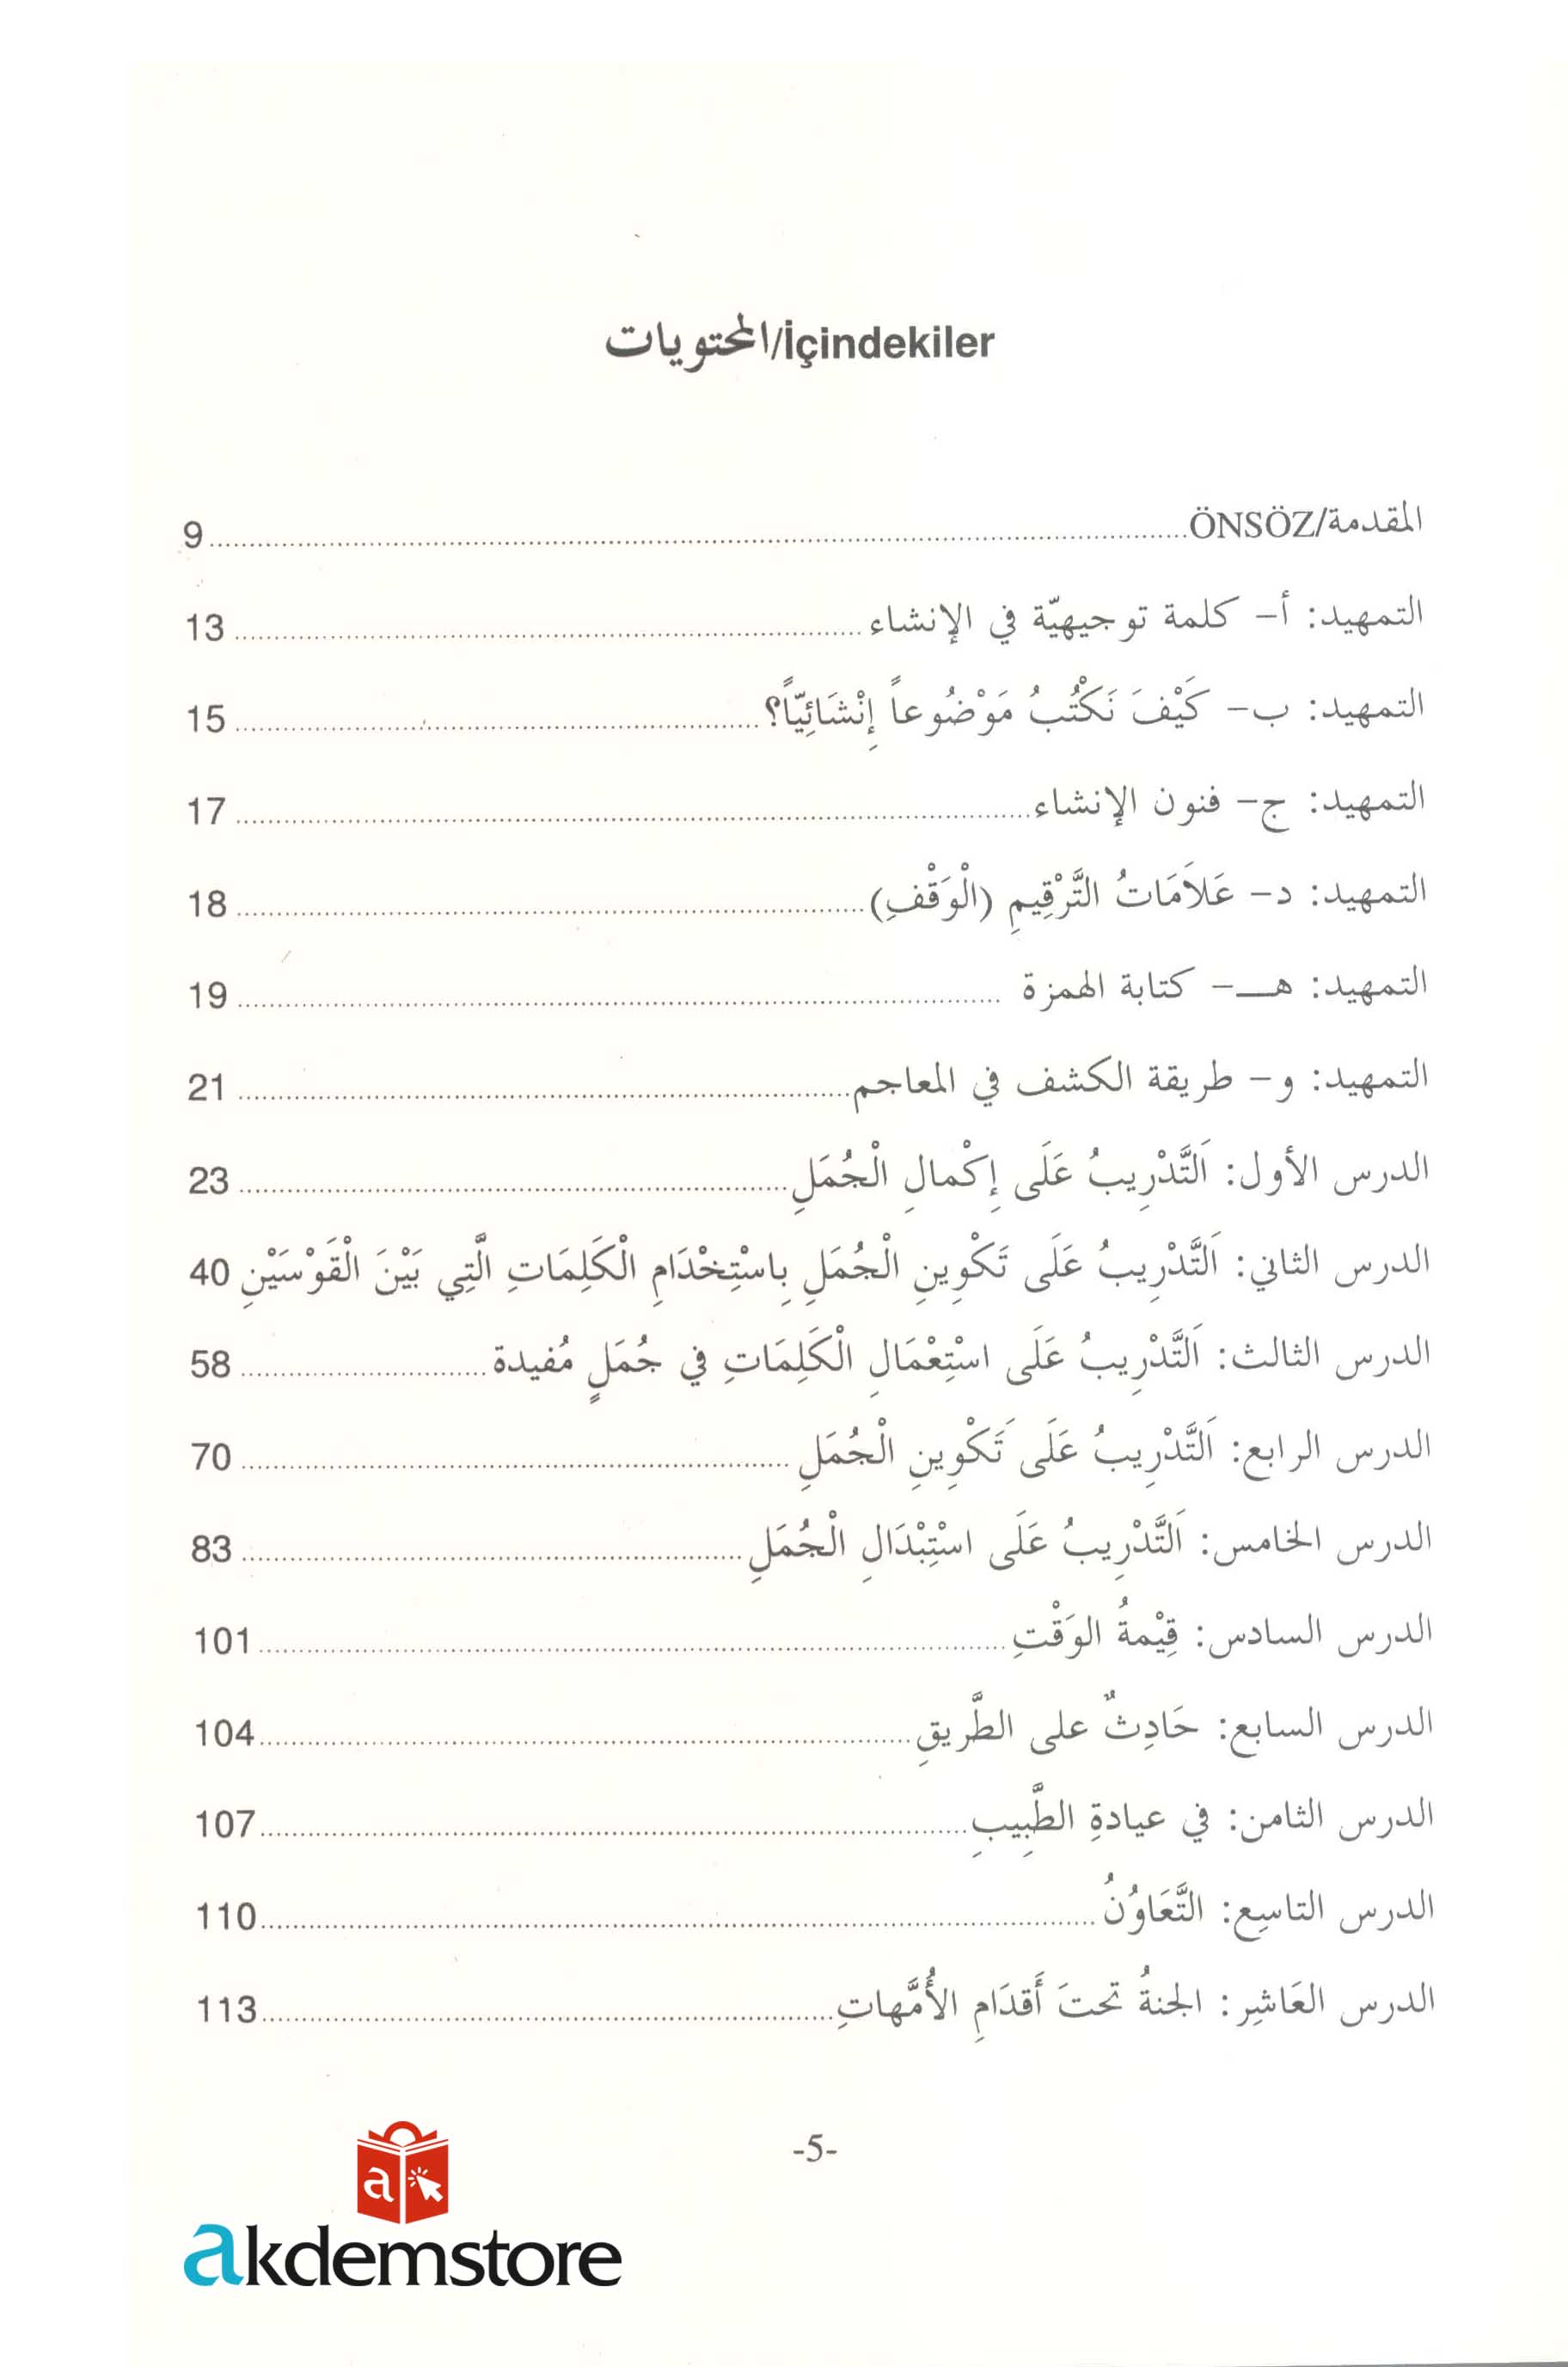 المحتويات/İçindekiler
المقدمة/ÖNSÖZ 9
التمهيد: أ- كلمة توجيهيّة في الإنشاء 13
التمهيد: ب- كَيْفَ نَكْتُبُ مَوْضُوعاً إِنْشَائِيّاً؟ 15
التمهيد: ج- فنون الإنشاء 17
التمهيد: د- عَلاَمَاتُ التَّرْقِيمِ (الْوَقْفِ) 18
التمهيد: هـ- كتابة الهمزة 19
التمهيد: و- طريقة الكشف في المعاجم 21
الدرس الأول: اَلتَّدْرِيبُ عَلَى إِكْمالِ الْجُمَلِ 23
الدرس الثاني: اَلتَّدْرِيبُ عَلَى تَكْوِينِ الْجُمَلِ بِاسْتِخْدَامِ الْكَلِمَاتِ الَّتِي بَيْنَ الْقَوْسَيْنِ 40
الدرس الثالث: اَلتَّدْرِيبُ عَلَى اسْتِعْمَالِ الْكَلِمَاتِ في جُمَلٍ مُفيدة 58
الدرس الرابع: اَلتَّدْرِيبُ عَلَى تَكْوِينِ الْجُمَلِ 70
الدرس الخامس: اَلتَّدْرِيبُ عَلَى اسْتِبْدَالِ الْجُمَلِ 83
الدرس السادس: قِيْمةُ الوَقْتِ 101
الدرس السابع: حَادِثٌ على الطَّريقِ 104
الدرس الثامن: في عيادةِ الطَّبِيبِ 107
الدرس التاسِع: التَّعَاوُنُ 110
الدرس العَاشِر: الجنةُ تحتَ أَقدَامِ الأُمَّهاتِ 113
-5-
a
akdemstore